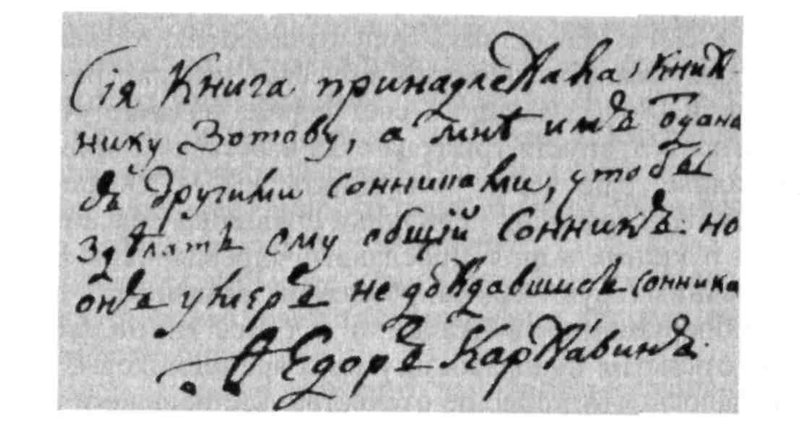 Сія Книга принадлежала книж-
нику Зотову, а мнѣ имъ отдана
съ другими сонниками, чтобы
здѣлать ему общій Сонникъ: но
онъ умеръ не дождавшись сонника
Ѳедоръ Каржа́винъ.